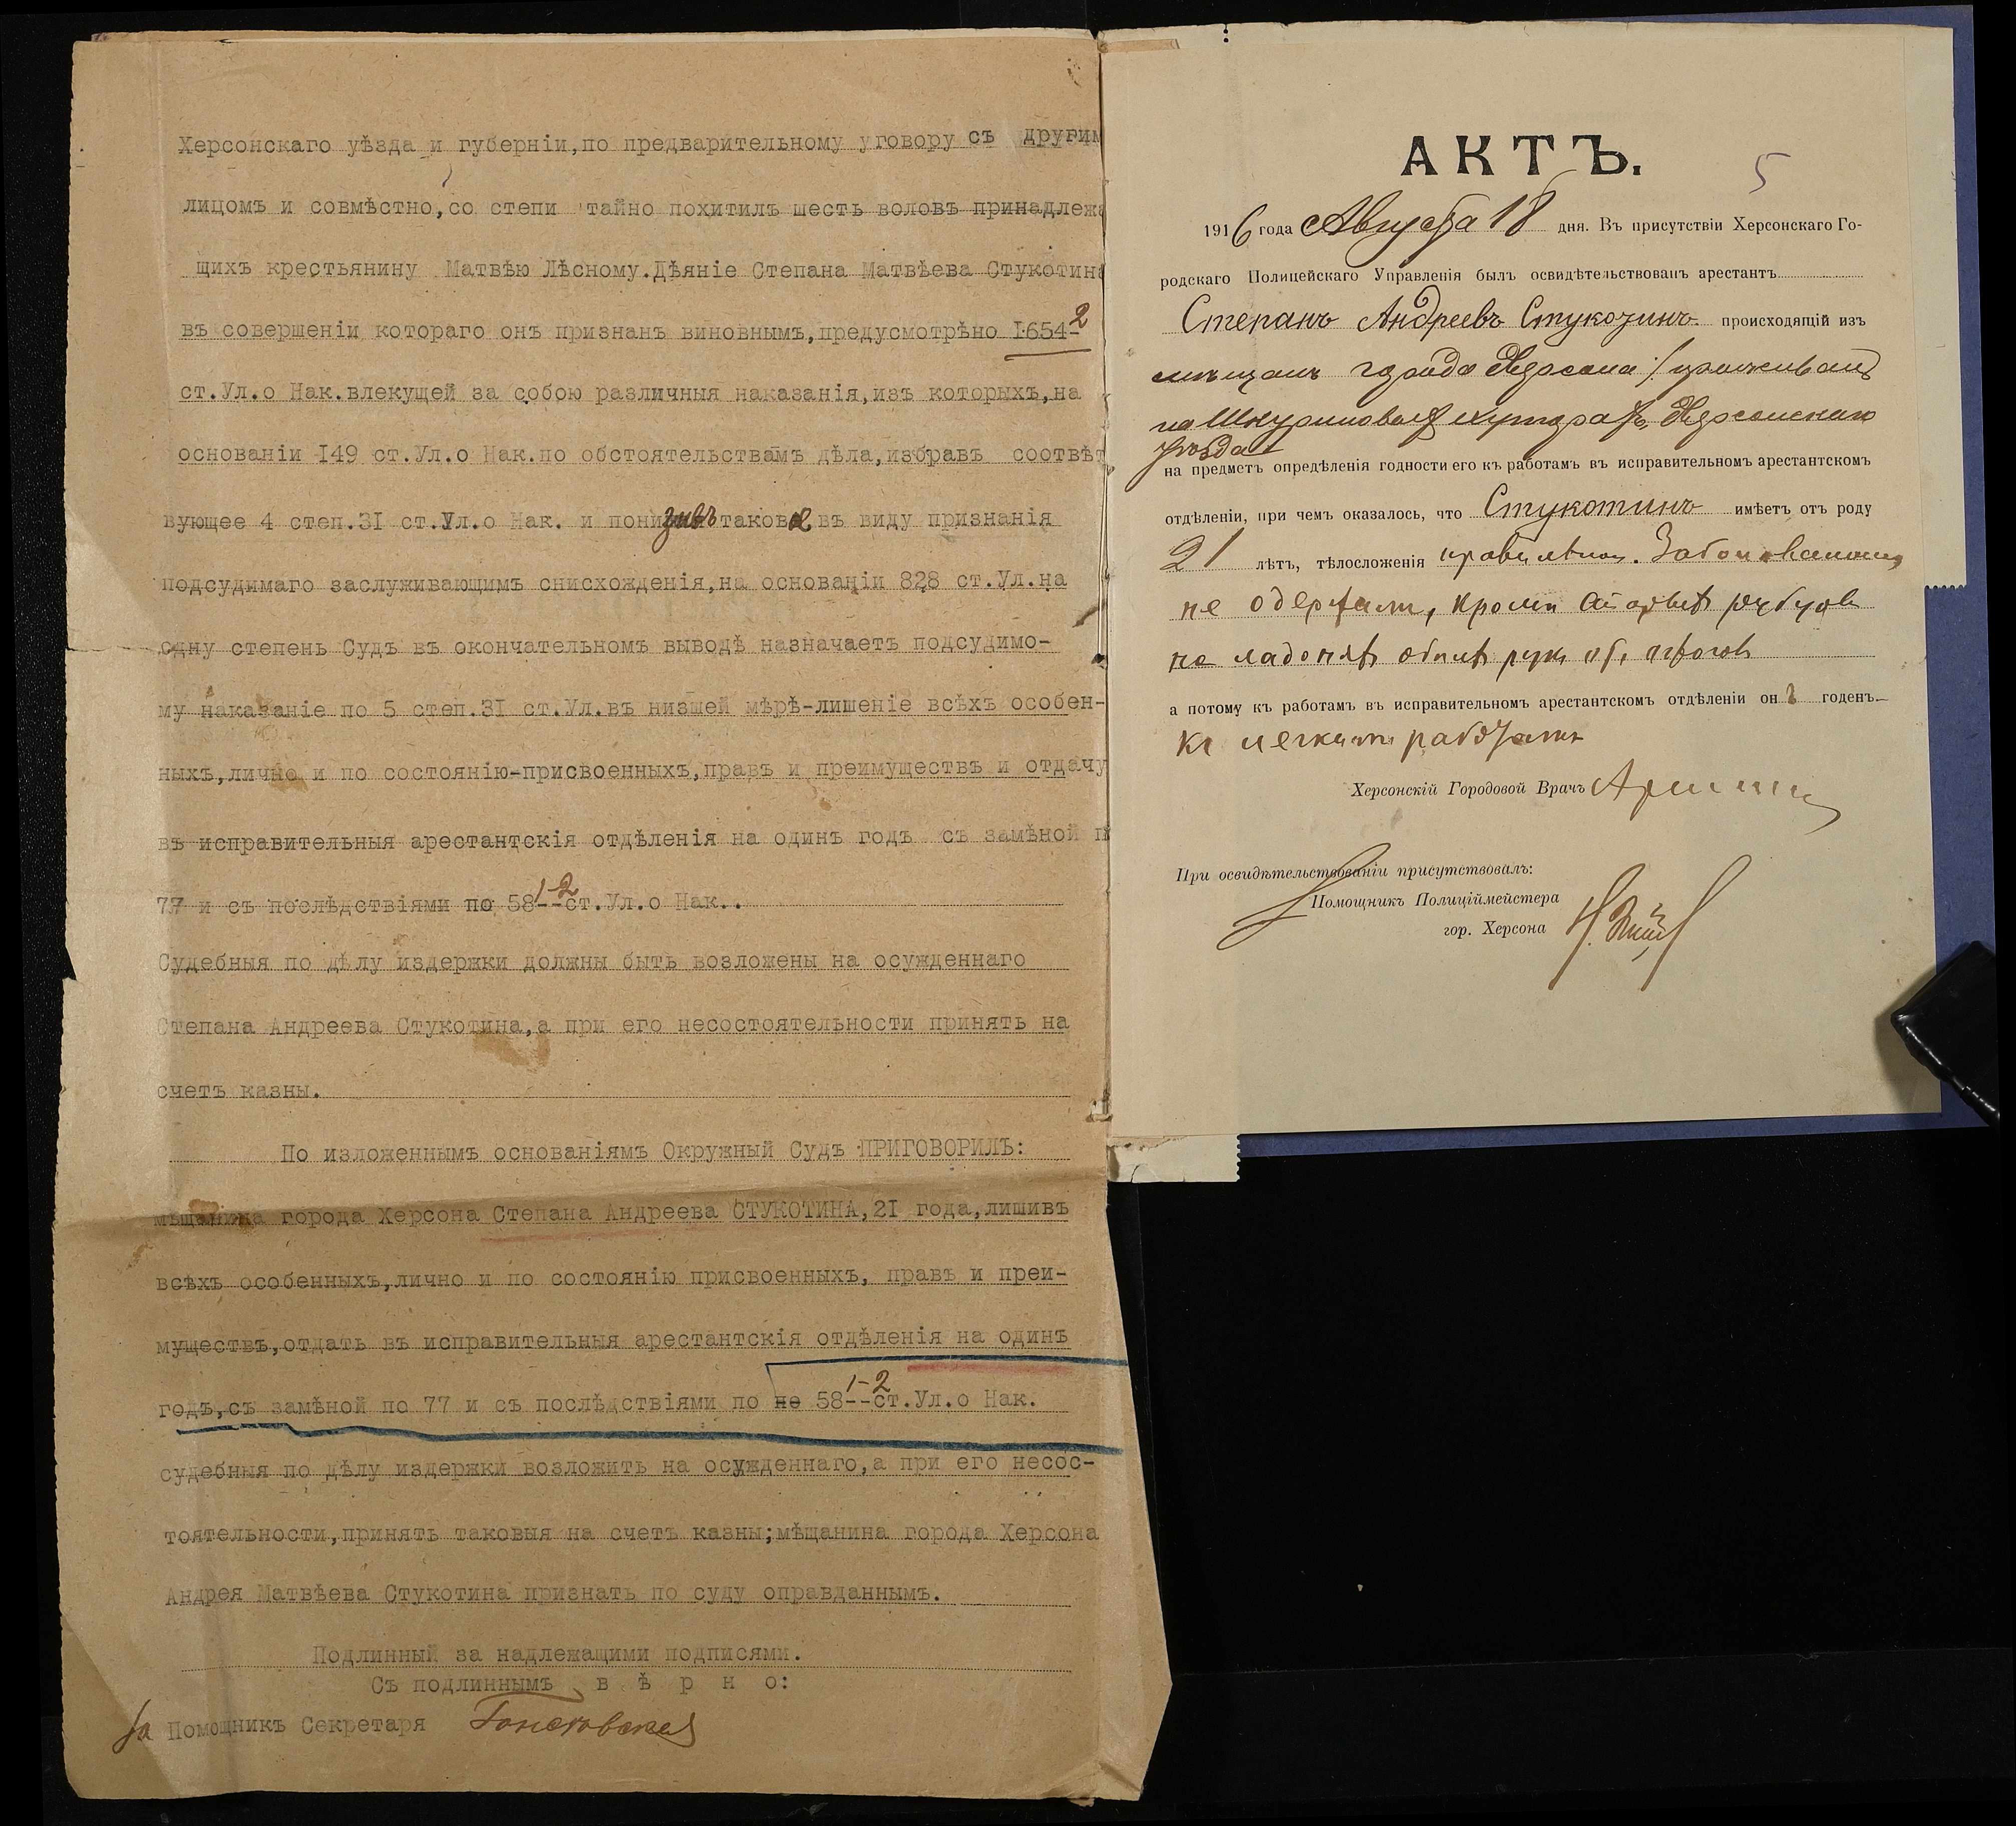 Херсонскаго уѣзда и губерніи,по предварительному уговору съ другим
лицомъ и совмѣстно,со степи тайно похитилъ шесть воловъ принадлежа
щихъ крестьянину Матвѣю Лѣсному.Дѣяніе Степана Матвѣева Стукотина
въ совершеніи котораго онъ признанъ виновнымъ,предусмотрѣно I654-2
ст.Ул.о Нак.влекущей за собою различныя наказанія,изъ которыхъ,на
основаніи I49 ст.Ул.о Нак.по обстоятельствамъ дѣла,избравъ соотвѣт
вующее 4 степ.3I ст.Ул.о Нак. и понизивъ таковое въ виду признанія
подсудимаго заслуживающимъ снисхожденія,на основаніи 828 ст.Ул.на
одну степень Судъ въ окончательномъ выводѣ назначаетъ подсудимо-
му наказаніе по 5 степ.3I ст.Ул.въ низшей мѣрѣ-лишеніе всѣхъ особен-
ныхъ,лично и по состоянію-присвоенныхъ,правъ и преимуществъ и отдачу
въ исправительныя арестантскія отдѣленія на одинъ годъ съ замѣной п
77 и съ послѣдствіями по 58 1-2 --ст.Ул.о Нак..
Судебныя по дѣлу издержки должны быть возложены на осужденнаго
Степана Андреева Стукотина,а при его несостоятельности принять на
счетъ казны.
По изложеннымъ основаніямъ Окружный Судъ ПРИГОВОРИЛЪ:
мѣщанина города Херсона Степана Андреева СТУКОТИНА,2I года,лишивъ
всѣхъ особенныхъ,лично и по состоянію присвоенныхъ, правъ и преи-
муществъ,отдать въ исправительныя арестантскія отдѣленія на одинъ
годъ,съ замѣной по 77 и съ послѣдствіями по не 58 1-2 --ст.Ул.о Нак.
судебныя по дѣлу издержки возложить на осужденнаго,а при его несос-
тоятельности,принять таковыя на счетъ казны;мѣщанина города Херсона
Андрея Матвѣева Стукотина признать по суду оправданнымъ.
Подлинный за надлежащими подписями.
Съ подлиннымъ в ѣ р н о:
За Помощникъ Секретаря
АКТЪ.
5
1916 года Августа 18 дня. Въ присутствіи Херсонскаго Го-
родскаго Полицейскаго Управленія былъ освидѣтельствованъ арестантъ
Степанъ Андреевъ Стукотинъ происходящій изъ
мѣщанъ города Херсона /:проживаетъ
на Шкуриновыхъ хуторахъ, Херсонскаго
уѣзда
на предметъ опредѣленія годности его къ работамъ въ исправительномъ арестантскомъ
отдѣленіи, при чемъ оказалось, что Стукотинъ имѣетъ отъ роду
21 лѣтъ, тѣлосложенія
не одержимъ, кромѣ рубцовъ
на ладоняхъ обѣихъ рукъ отъ ожоговъ
а потому къ работамъ въ исправительномъ арестантскомъ отдѣленіи онъ годенъ
къ легкимъ работамъ
Херсонскій Городовой Врачъ
При освидѣтельствованіи присутствовалъ:
Помощникъ Полиціймейстера
гор. Херсона